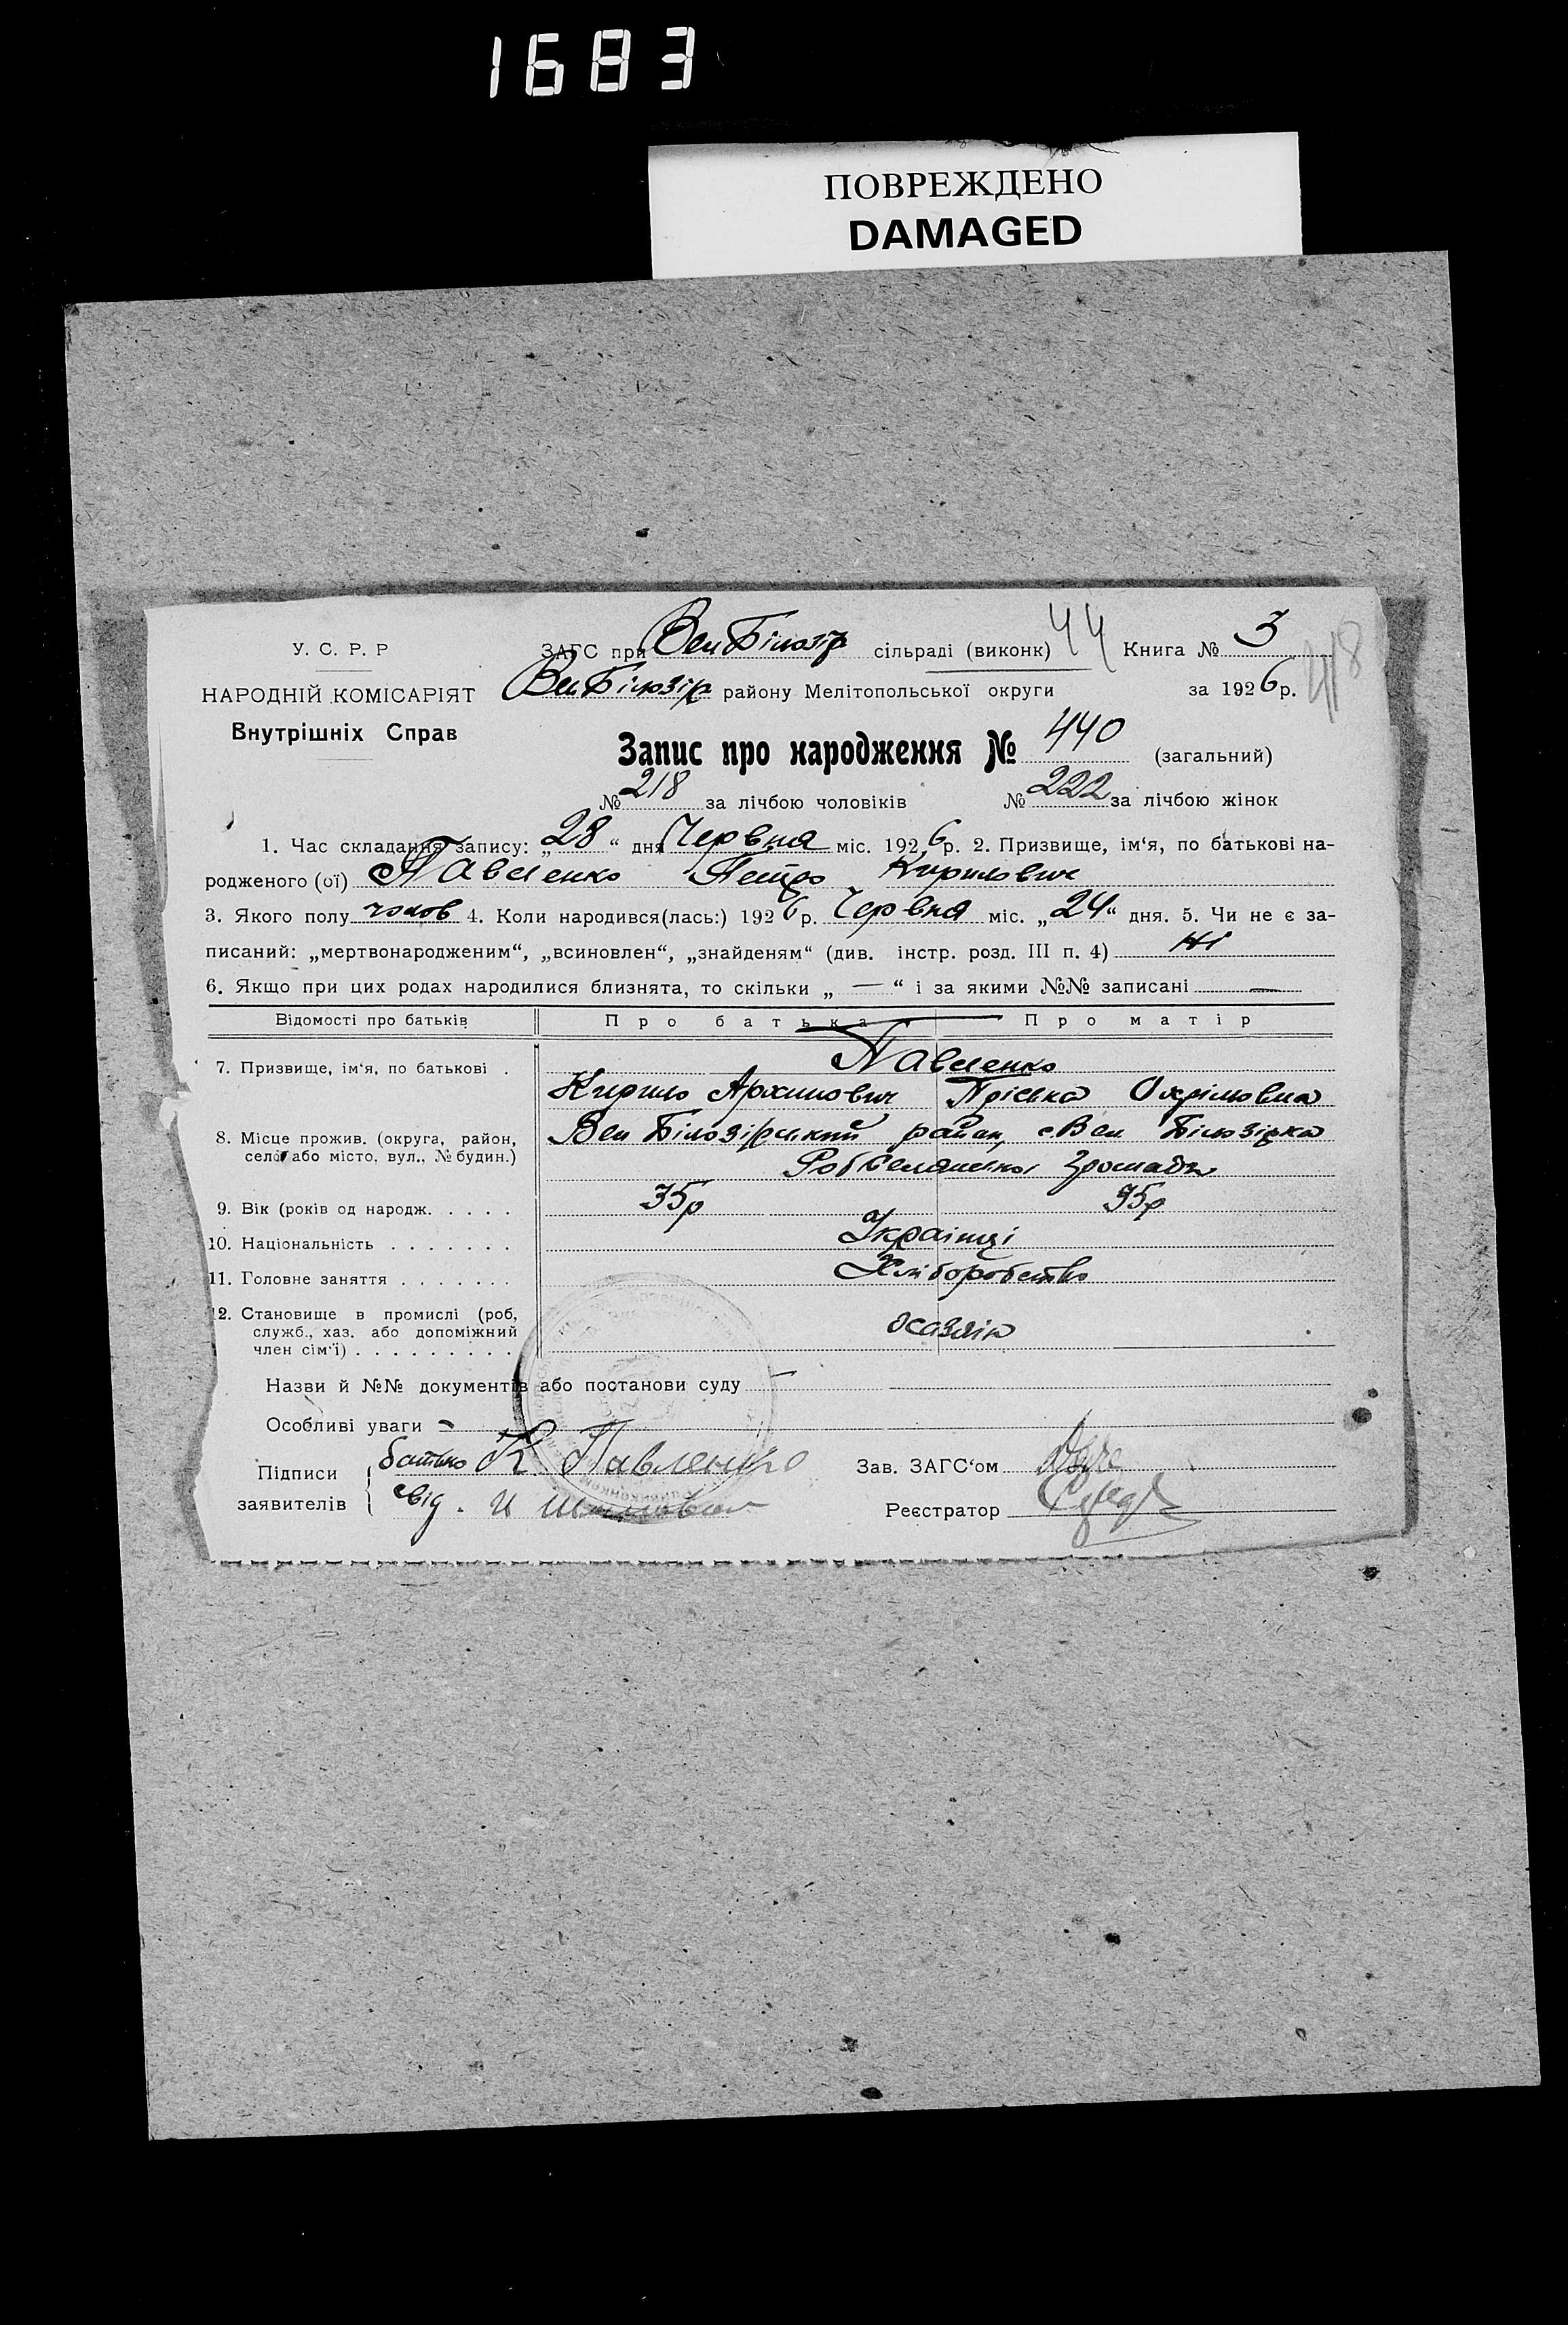 1683
ПОВРЕЖДЕНО
DAMAGED
У. С. Р. Р
ЗАГС при Вел Білозір сільраді (виконк) 44 Книга № 3
418
НАРОДНІЙ КОМІСАРІЯТ Вел Білозір району Мелітопольської округи за 1926 р.
Внутрішніх Справ
Запис про народження № 440 (загальний)
№ 218 за лічбою чоловіків № 222 за лічбою жінок
1. Час складання запису: „28“ дня Червня міс. 1926 р. 2. Призвище, ім‘я, по батькові на-
родженого (ої) Павленко Петро Кирилович
3. Якого полу чолов 4. Коли народився(лась:) 1926 р. Червня міс. „24“ дня. 5. Чи не є за-
писаний: „мертвонародженим“, „всиновлен“, „знайденям“ (див. інстр. розд. III п. 4) Ні
6. Якщо при цих родах народилися близнята, то скільки „ — “ і за якими №№ записані —
Відомості про батьків Про батька Про матір
7. Призвище, ім‘я, по батькові . Павленко
Кирило Архипович Пріська Охрімовна
8. Місце прожив. (округа, район, Вел Білозірський район, с. Вел Білозірка
село або місто, вул., № будин.)
Робселянської Громади
9. Вік (років од народж. . . . . 35р 35р
10. Національність . . . . . . . Українці
11. Головне заняття . . . . . . . Хліборобство
12. Становище в промислі (роб,
служб., хаз. або допоміжний
член сім‘ї) . . . . . . . . .
Назви й №№ документів або постанови суду —
Особливі уваги –
Підписи батько К. Павленко Зав. ЗАГС‘ом
заявителів свід. И Реєстратор